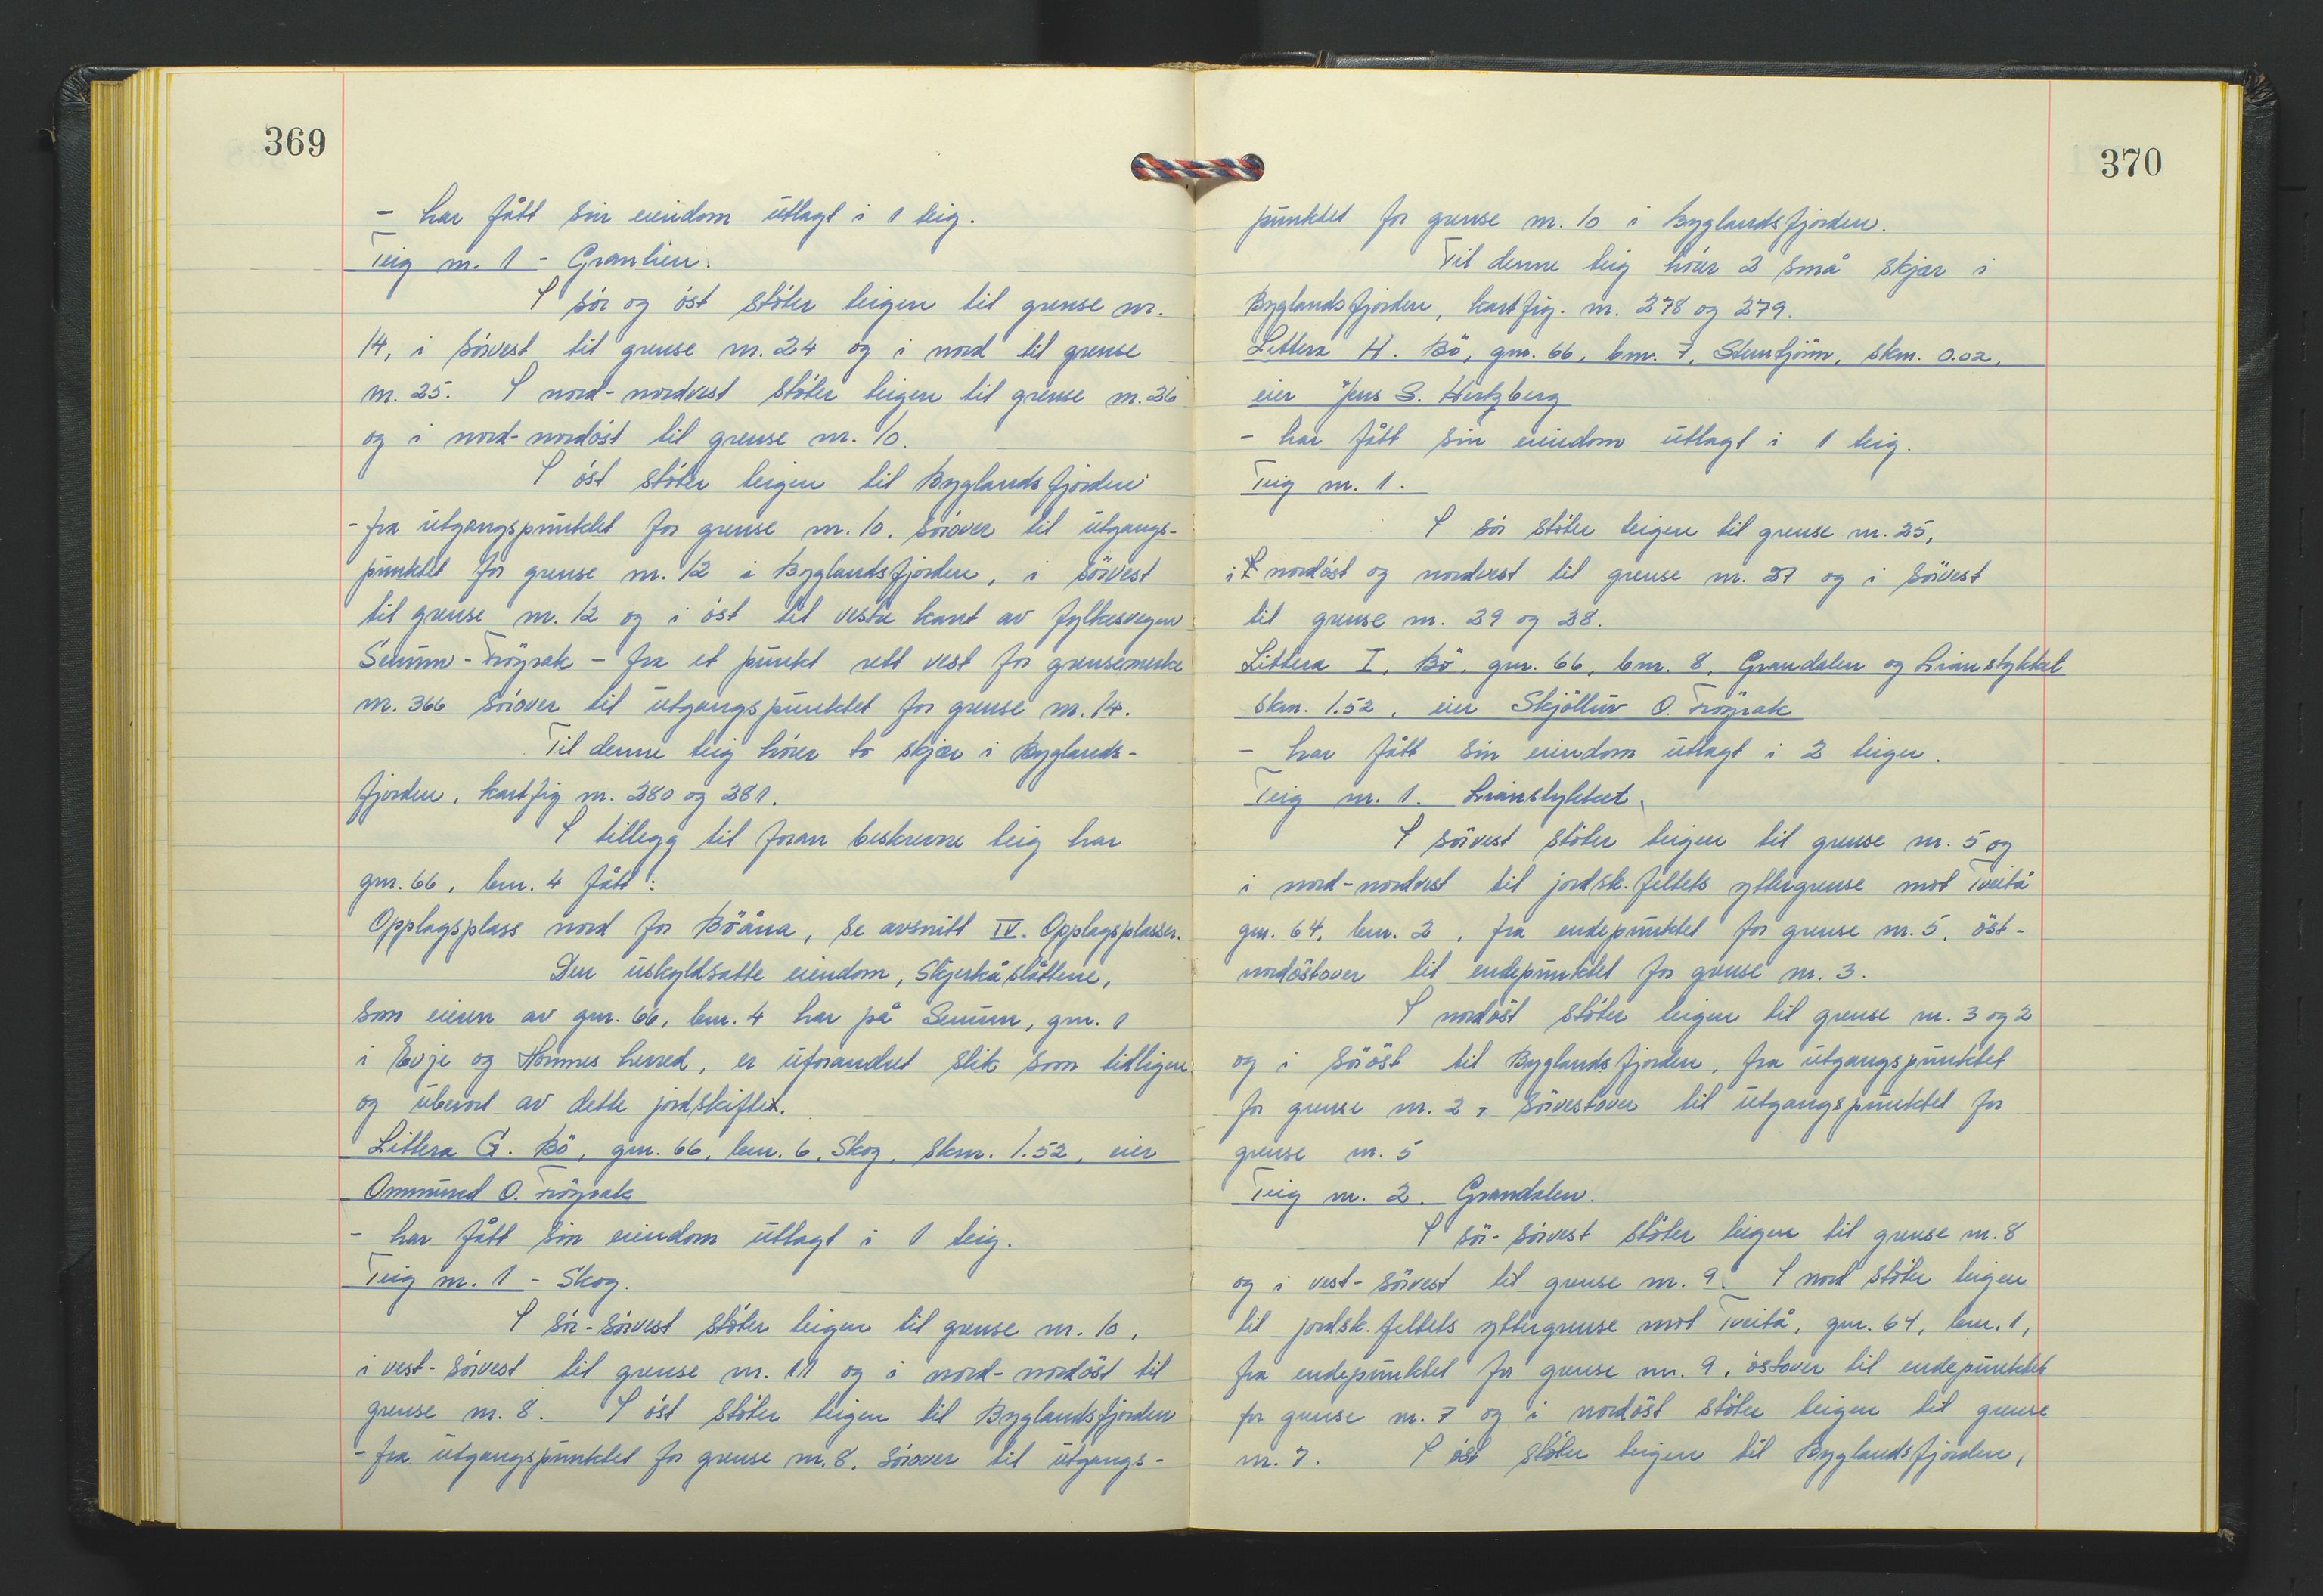 369
- har fått sin eiendom utlagt i 1 teig.
Teig nr. 1 - Granlien.
I sör og öst stöter teigen til grense nr.
14, i sörvest til grense nr. 24 og i nord til grense
nr. 25. I nord-nordvest stöter teigen til grense nr. 26
og i nord-nordöst til grense nr. 10.
I öst stöter teigen til Byglandsfjorden
- fra utgangspunktet for grense nr. 10, sörover til utgangs-
punktet for grense nr. 12 i Byglandsfjorden, i sörvest
til grense nr. 12 og i öst til vestre kant av fylkesvegen
Senum - Fröyrak - fra et punkt rett vest for grensemerke
nr. 366 sörover til utgangspunktet for grense nr. 14.
Til denne teig hörer to skjær i Byglands-
fjorden, kartfig nr. 280 og 281.
I tillegg til foran beskrevne teig har
gnr. 66, bnr. 4 fått:
Opplagsplass nord for Böåna, se avsnitt IV. Opplagsplasser.
Den uskyldsatte eiendom, Skjerkåslåttene,
som eieren av gnr. 66, bnr. 4 har på Senum, gnr. 1
i Evje og Hornnes herred, er uforandret slik som tidligere
og uberört av dette jordskiftet.
Littera G. Bö, gnr. 66, bnr. 6, Skog, skm. 1.52, eier
Ommund O. Fröyrak
- har fått sin eiendom utlagt i 1 teig.
Teig nr. 1 - Skog.
I sör-sörvest stöter teigen til grense nr. 10,
i vest-sörvest til grense nr. 11 og i nord-nordöst til
grense nr. 8. I öst stöter teigen til Byglandsfjorden
- fra utgangspunktet for grense nr. 8, sörover til utgangs-
370
punktet for grense nr. 10 i Byglandsfjorden.
Til denne teig hörer 2 små skjær i
Byglandsfjorden, kartfig. nr. 278 og 279.
Littera H. Bö, gnr. 66, bnr. 7, Stemtjönn, skm. 0.02,
eier Jens S. Hertzberg
- har fått sin eiendom utlagt i 1 teig.
Teig nr. 1.
I sör stöter teigen til grense nr. 25,
i nordöst og nordvest til grense nr. 27 og i sörvest
til grense nr. 29 og 28.
Littera I, Bö, gnr. 66, bnr. 8, Grandalen og Lianstykket
skm. 1.52, eier Skjölluv O. Fröyrak
- har fått sin eiendom utlagt i 2 teiger.
Teig nr. 1. Lianstykket.
I sörvest stöter teigen til grense nr. 5 og
i nord-nordvest til jordsk.feltets yttergrense mot Tveitå
gnr. 64, bnr. 2, fra endepunktet for grense nr. 5, öst-
nordöstover til endepunktet for grense nr. 3.
I nordöst stöter teigen til grense nr. 3 og 2
og i söröst til Byglandsfjorden, fra utgangspunktet
for grense nr. 2, sörvestover til utgangspunktet for
grense nr. 5
Teig nr. 2. Grandalen.
I sör-sörvest stöter teigen til grense nr. 8
og i vest-sörvest til grense nr. 9. I nord stöter teigen
til jordsk.feltets yttergrense mot Tveitå, gnr. 64, bnr. 1,
fra endepunktet for grense nr. 9, östover til endepunktet
for grense nr. 7 og i nordöst stöter teigen til grense
nr. 7. I öst stöter teigen til Byglandsfjorden,